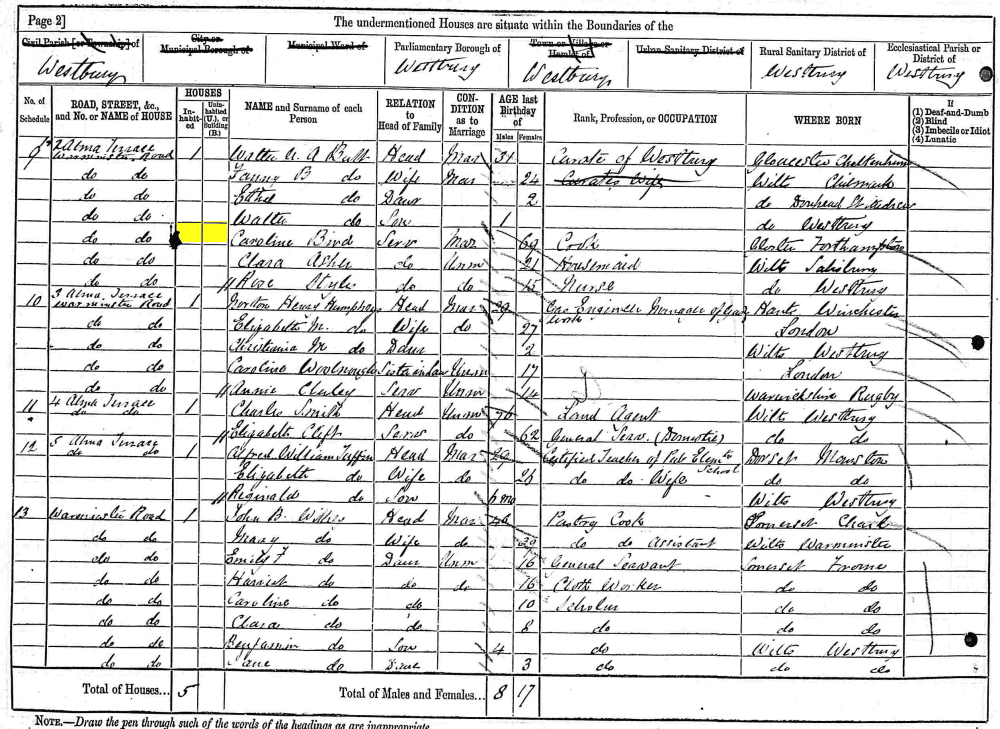 Page 2]
The undermentioned Houses are situate within the Boundaries of the
Civil Parish [or Township] of
City or Municipal Borough of
Municipal Ward of
Parliamentary Borough of
Town or Village or Hamlet of
Urban Sanitary District of
Rural Sanitary District of
Ecclesiastical Parish or District of
Westbury Westbury Westbury Westbury Westbury
No. of Schedule
ROAD, STREET, &c., and No. or NAME of HOUSE
HOUSES
Inhabited
Uninhabited (U.), or Building (B.)
NAME and Surname of each Person
RELATION to Head of Family
CONDITION as to Marriage
AGE last Birthday of
Males Females
Rank, Profession, or OCCUPATION
WHERE BORN
If
(1) Deaf-and-Dumb
(2) Blind
(3) Imbecile or Idiot
(4) Lunatic
9 2 Alma Terrace Warminster Road 1 Walter A Butt Head Mar 31 Curate of Westbury Gloucester Cheltenham
do do Fanny B do Wife Mar 24 Curates Wife Wilts Chilmark
do do Ethel do Daur 2 do Donhead St Andrew
do do Walter do Son 1 do Westbury
do do Caroline Bird Serv Mar 69 Cook Gloster
do do Clara do Unm 21 Housemaid Wilts Salisbury
do do Rose Styles do do 15 Nurse do Westbury
10 3 Alma Terrace Warminster Road 1 Henry Humphrys Head Mar 29 Gas Engineer Manager of Gas Work Hants Winchester
do do Elizabeth M. do Wife do 27 London
do do Christiania M do Daur 2 Wilts Westbury
do do Caroline Woolnough Sister in law Unm 17 London
do do Annie Serv Unm 14 Warwickshire Rugby
11 4 Alma Terrace do do 1 Charles Smith Head Unm 76 Land Agent Wilts Westbury
Elizabeth Clift Serv do 62 General Serv. (Domestic) do do
12 5 Alma Terrace do do 1 Alfred William Head Mar 29 Certified Teacher of Pub Elem School Dorset
Elizabeth do Wife do do do Wife do do
Reginald do Son 6 mo Wilts Westbury
13 Warminster Road 1 John B. Head Mar Pastry Cook Somerset Chard
do do Mary do Wife do do Assistant Wilts Warminster
do do Emily F do Daur Unm 16 General Servant Somerset Frome
do do Harriet do do do 16 Cloth Worker do do
do do Caroline do do 10 Scholar do do
do do Clara do do 8 do do do
do do Benjamin do Son 4 do Wilts Westbury
do do Jane do Daur 3 do do do
Total of Houses... 5
Total of Males and Females... 8 17
NOTE.—Draw the pen through such of the words of the headings as are inappropriate.